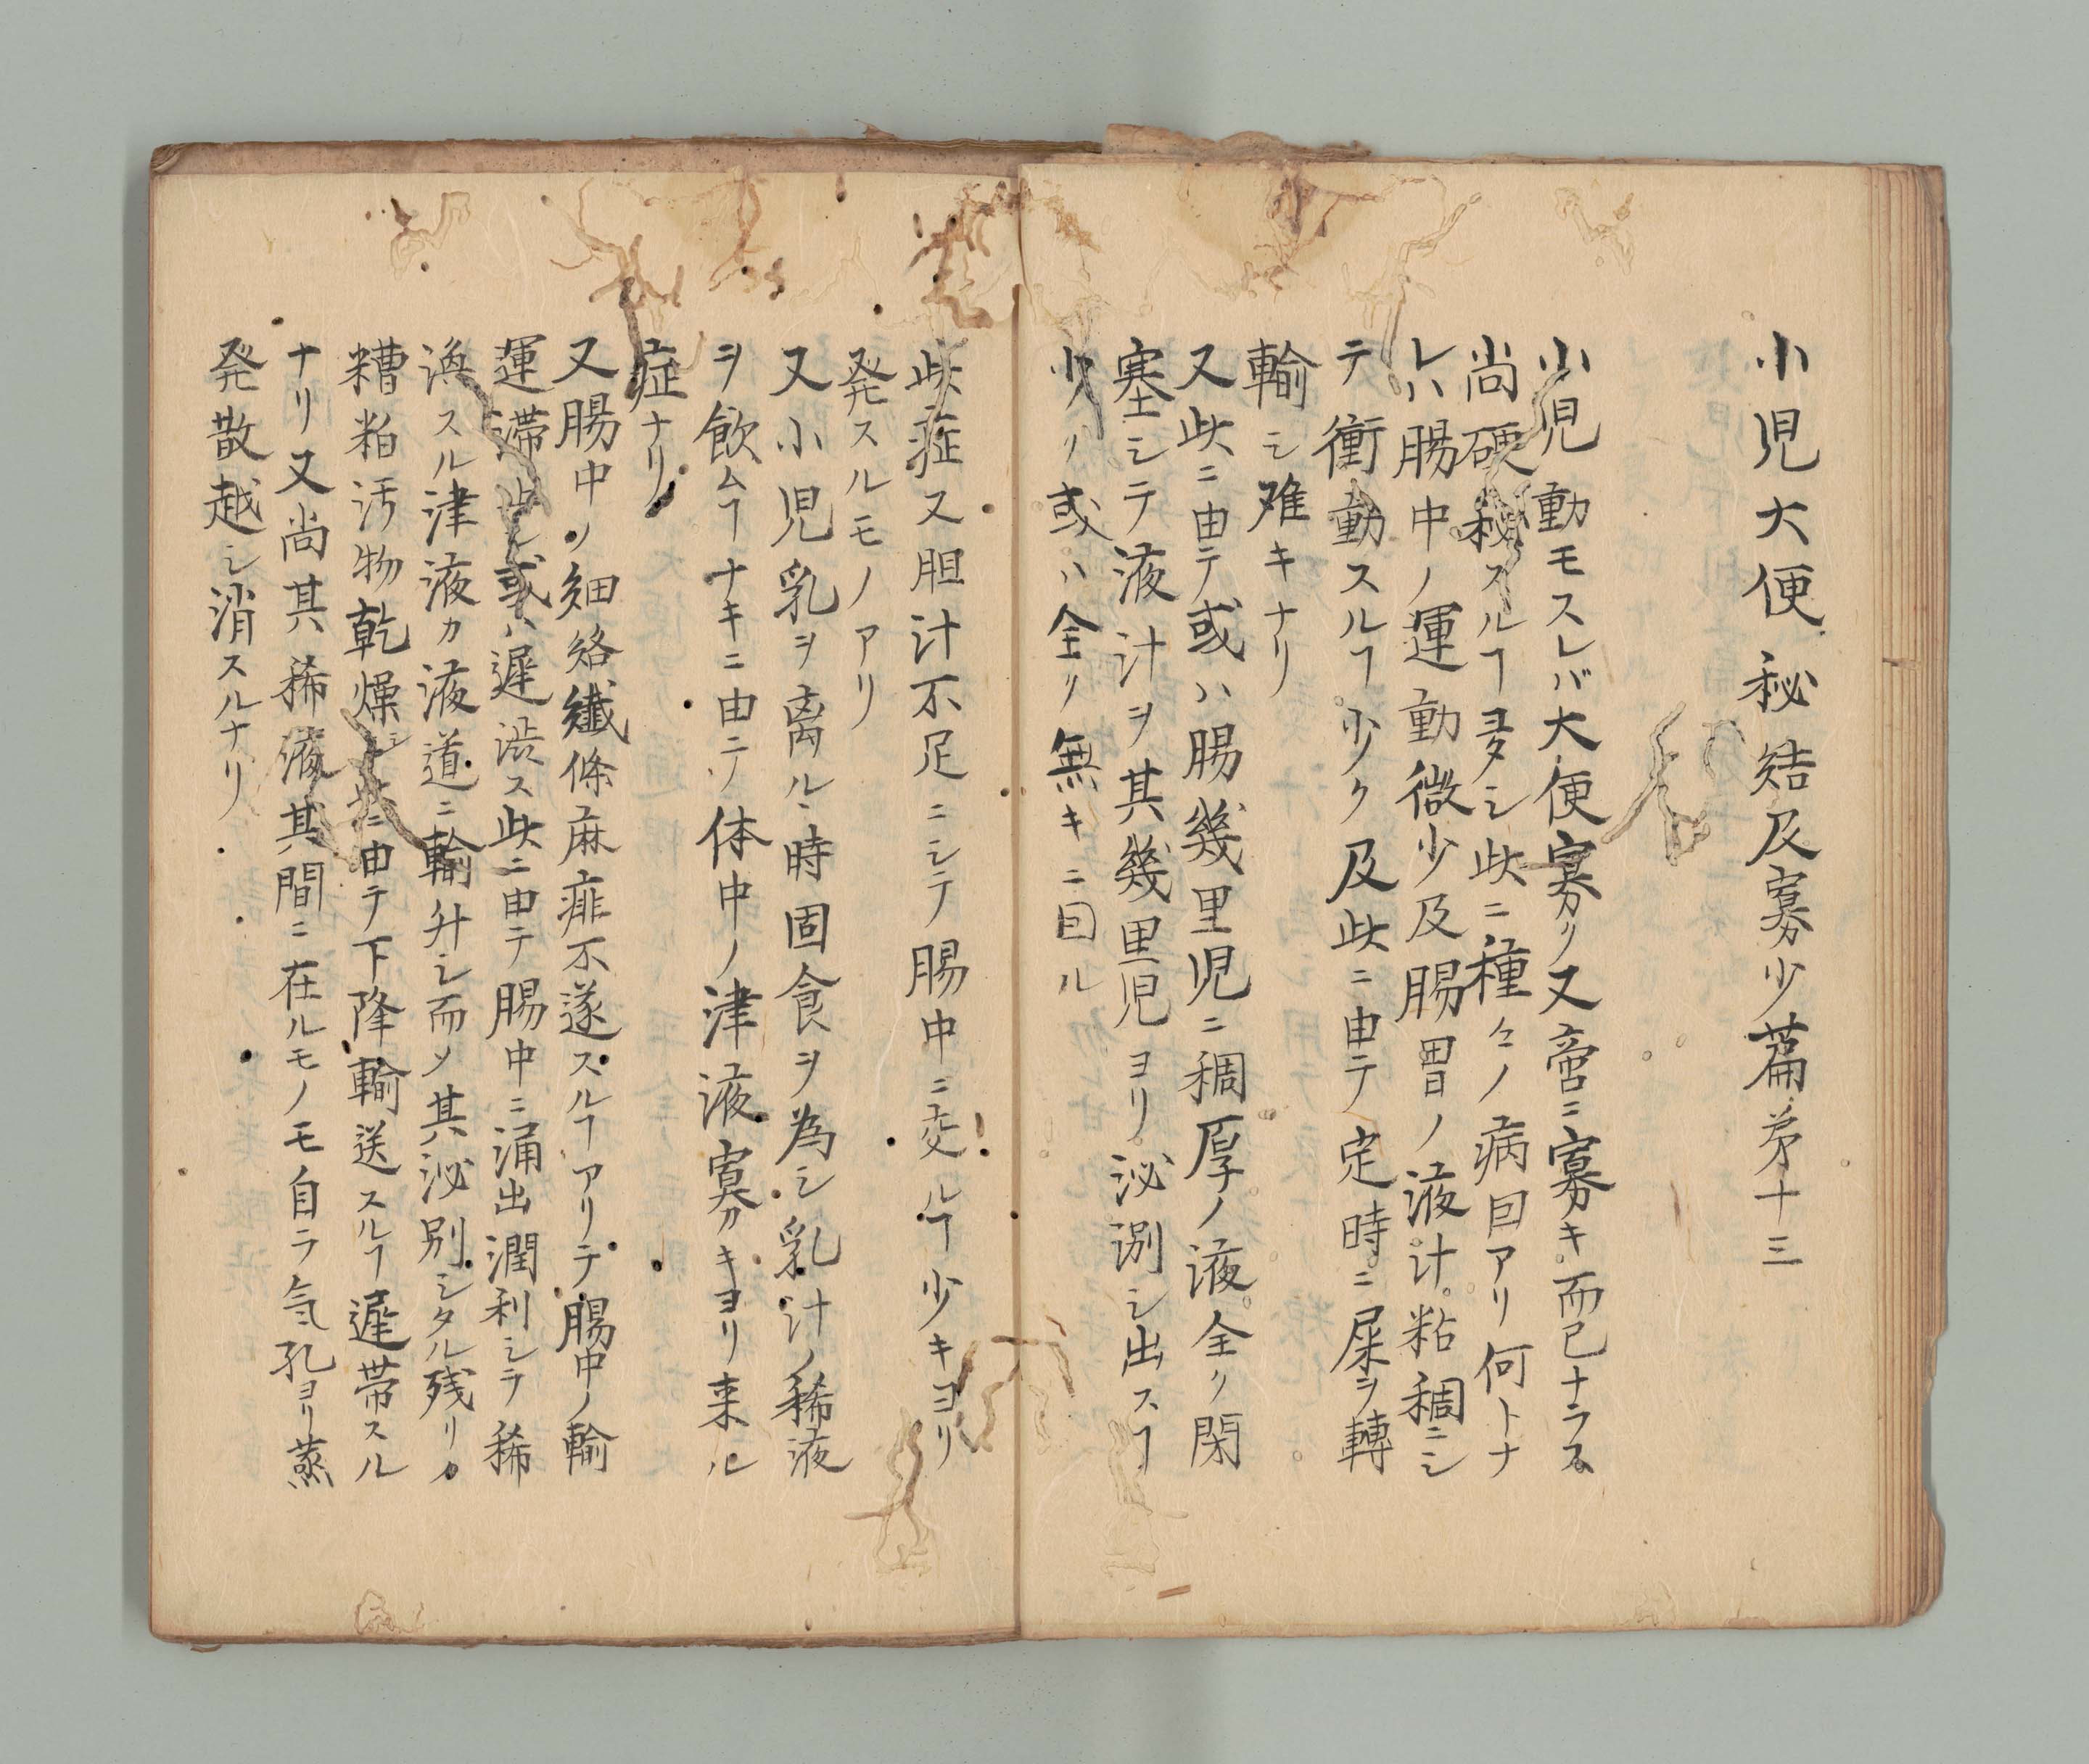 小児大便秘結及寡少篇第十三
小児動モスレバ大便寡リ又啻ニ寡キ而已ナラス
尚硬秘スルヿ多シ此ニ種々ノ病因アリ何トナ
レハ腸中ノ運動微少及腸胃ノ液汁粘稠ニシ
テ衝動スルヿ少ク及此ニ由テ定時ニ屎ヲ轉
輸シ难キナリ
又此ニ由テ或ハ腸幾里児ニ稠厚ノ液全ク閉
塞シテ液汁ヲ其幾里児ヨリ泌泄シ出スヿ
少ク或ハ全ク無キニ因ル
此症又胆汁不足ニシテ腸中ニ交ルヿ少キヨリ
発スルモノアリ
又小児乳ヲ离ルヽ時固食ヲ為シ乳汁ノ稀液
ヲ飲ムヿナキニ由テ体中ノ津液寡キヨリ来ル
症ナリ
又腸中ノ細絡纎條麻痱不遂スルヿアリテ腸中ノ輸
運滞止シ或ハ遲渋ス此ニ由テ腸中ニ涌出潤利シテ稀
渙スル津液カ液道ニ輸升シ而メ其泌別シタル残リノ
糟粕汚物乾燥シ此ニ由テ下降輸送スルヿ遲帯スル
ナリ又尚其稀液其間ニ在ルモノモ自ラ気孔ヨリ蒸
発散越シ消スルナリ